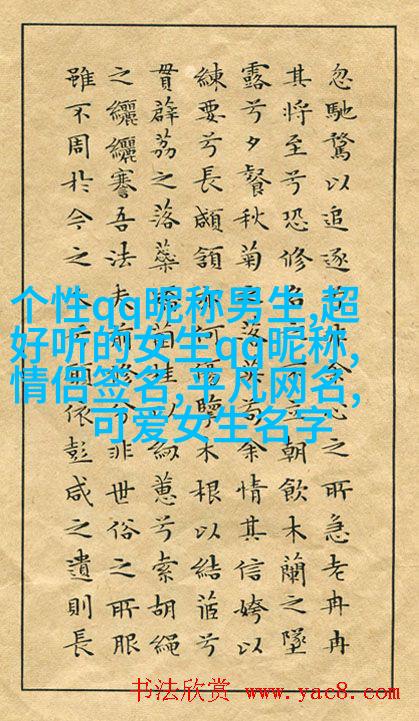 忽馳騖以追逐余心之所急老冉冉
其將至兮恐修名立朝飲木蘭之墜
露兮夕餐秋菊之落余情其信姱以
練要兮長顑頷何傷擥木根以結茝兮
貫薜荔之落蘂菌桂以紉蕙兮索胡繩
之纚纚謇吾法夫前修兮非世俗之所服
雖不周於今之依彭咸之遺則長
个性qq昵称男生,超
好听的女生qq昵称,
情侣签名,平凡网名,
可爱女生名字
书法欣赏 www.yac8.com